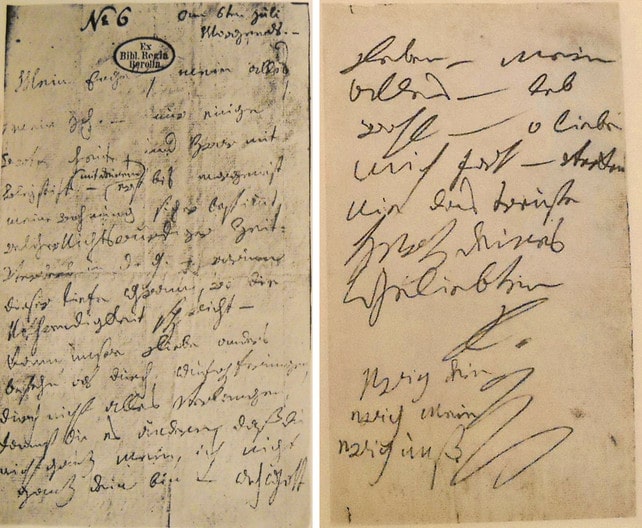 № 6 am 6ten Juli
Morgends. –
Ex
Bibl. Regia
Berolin.
Mein Engel, mein alles
mein Ich. – nur einige
Worte heute, und zwar mit
Bleystift – (mit deinem) bis morgen ist
meine Wohnung sicher bestimmt
welcher Nichtswürdiger Zeit-
Verderb in d. g. – warum
dieser tiefe Gram, wo die
Nothwendigkeit spricht –
Kann unsre Liebe anders
bestehn als durch Aufopferungen,
durch nicht alles verlangen,
kannst du es ändern, daß du
nicht ganz mein, ich nicht
ganz dein bin – Ach Gott
leben – mein
Alles – leb
wohl – o liebe
mich fort –
nie das treuste
Herz deines
Geliebten
L.
ewig dein
ewig mein
ewig unß